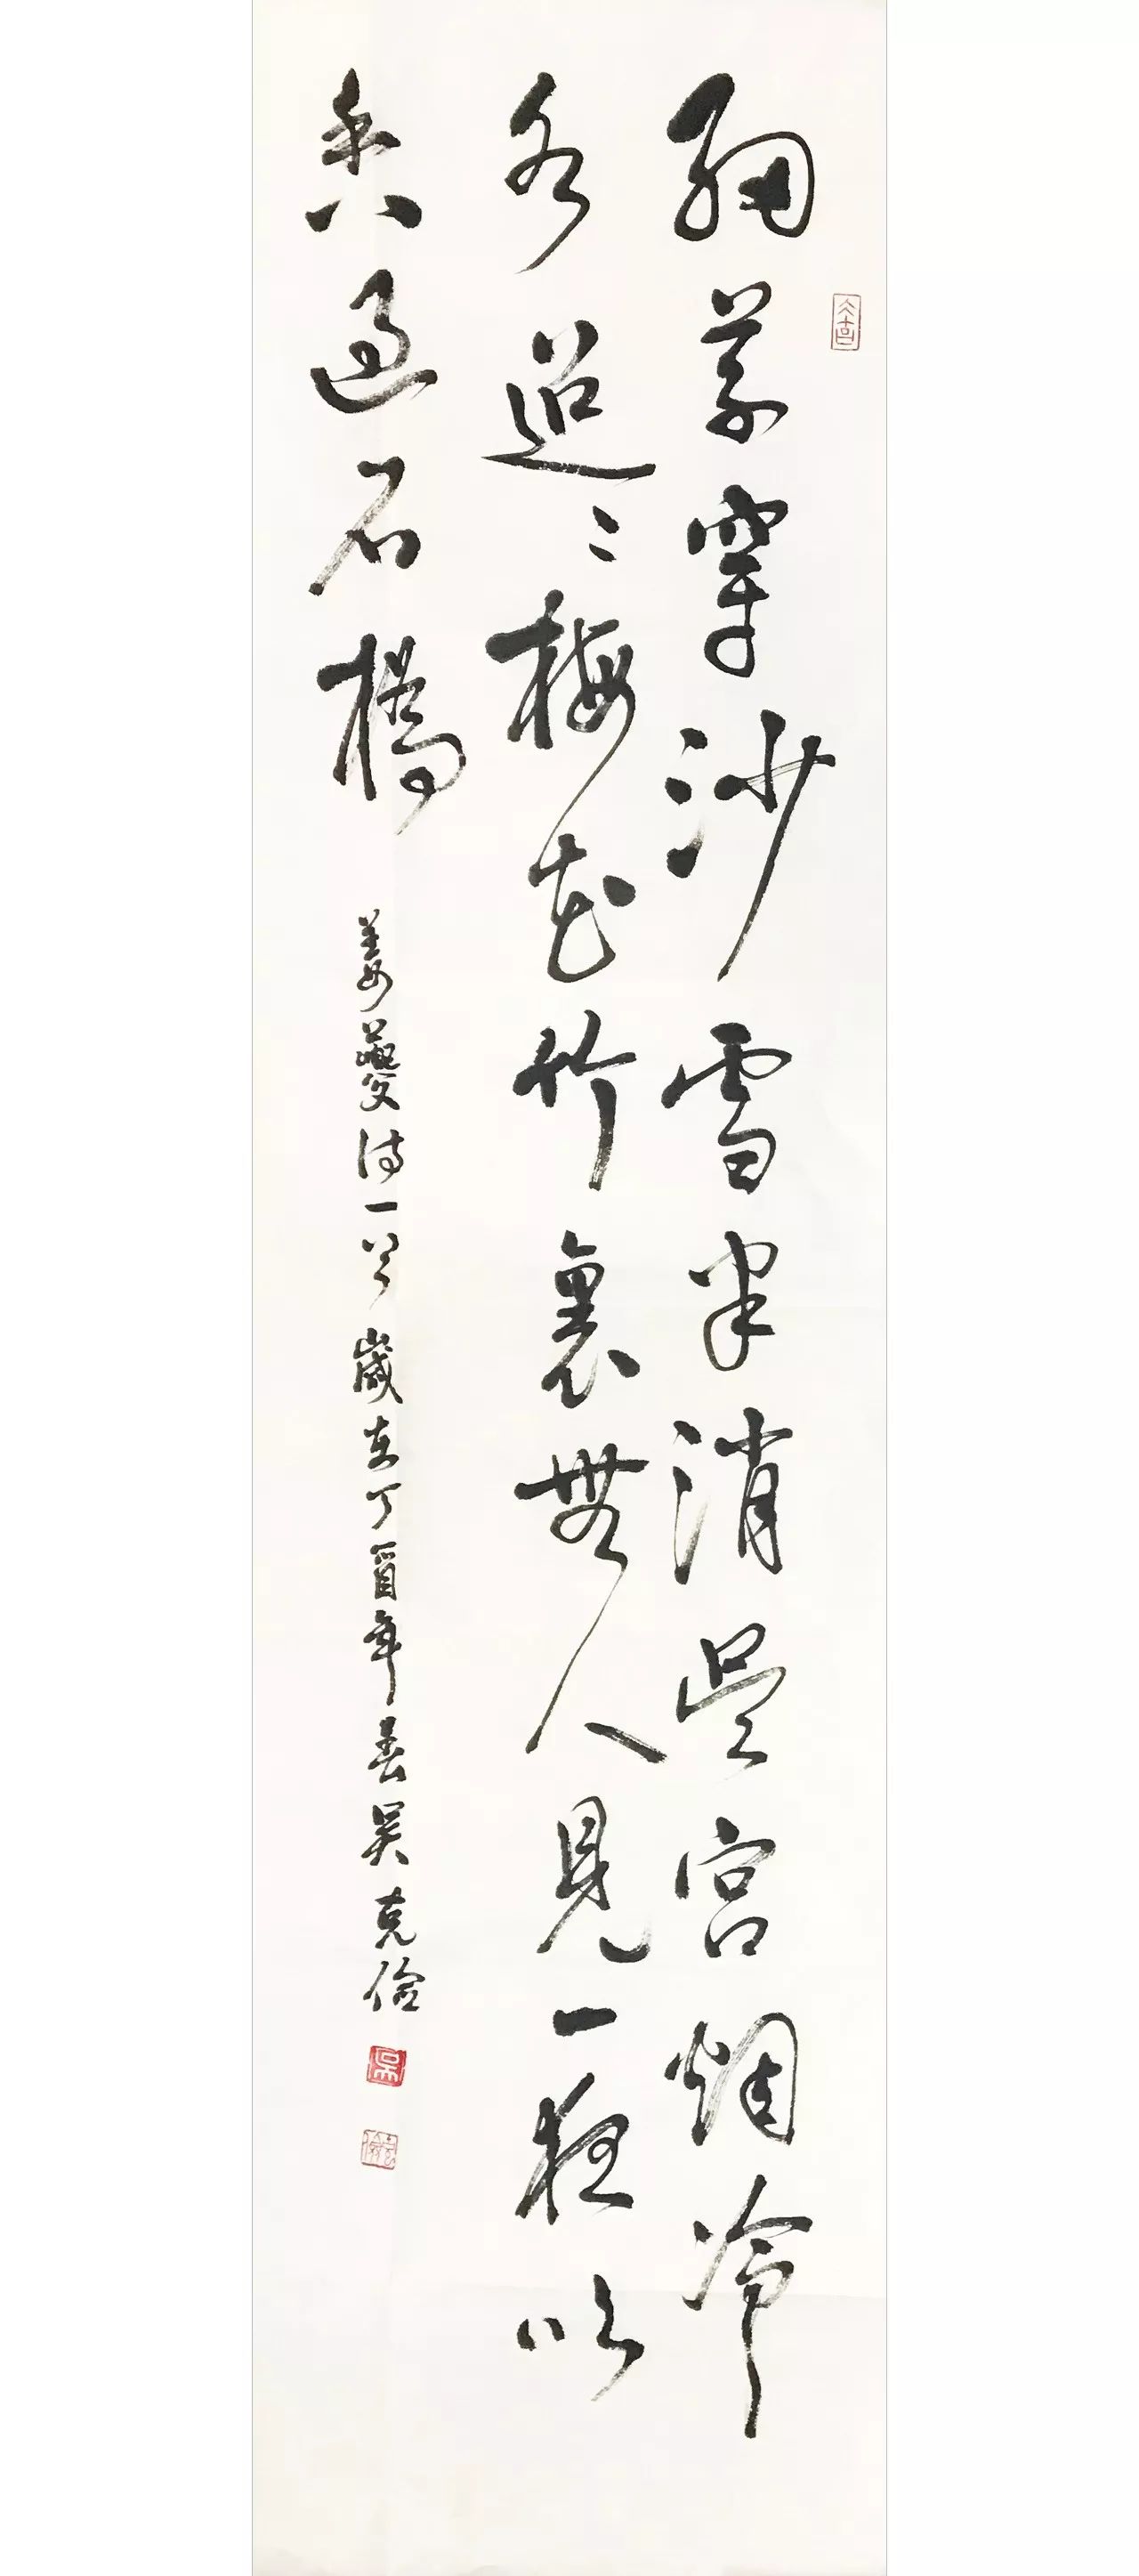 細草穿沙雪半消吴宮烟冷
水迢〻梅花竹裏無人見一夜吹
香過石橋
姜夔詩一首歲在丁酉年春吴克儉
吴
克儉